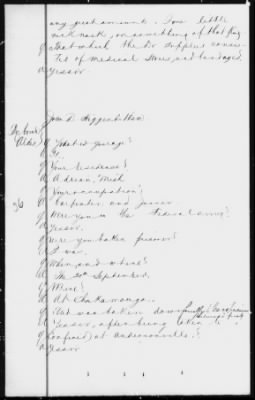 any great amount. Some little
nick nack, or something of that kind
Q That which the Dr supplies consis-
ted of medical stores, and bandages,
A Yessir
John D. Higginbotham
Dr Court
Q
A 60
Q Your residence?
A Adrian, Mich
Q Your occupation?
A Carpenter and joiner
96
Q Were you in the Federal army?
A Yessir.
Q Were you taken prisoner?
A I was.
Q When, and where?
A The 20th September,
Q Where?
A At Chickamauga.
Q
A Yessir, after being taken to
Q Confined at Andersonville?
A Yessir